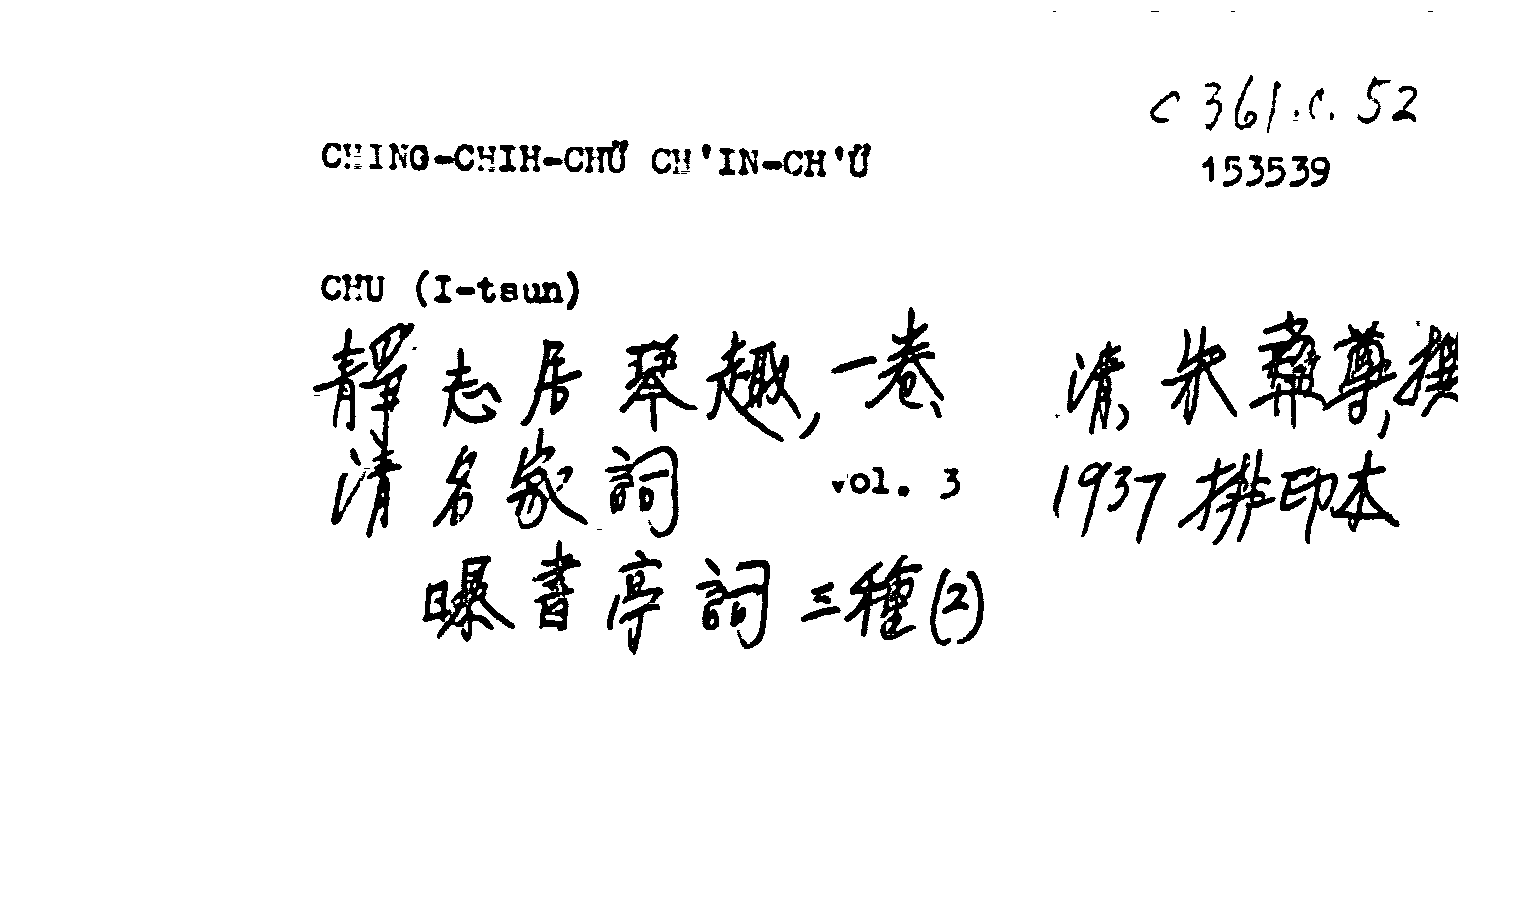 C 361.c.52
153539
CHING-CHIH-CHÜ CH'IN-CH'Ü
CHU (I-tsun)
靜志居琴趣,一卷、 清、朱彝尊,撰
清名家詞 vol. 3 1937排印本
曝書亭詞三種(2)